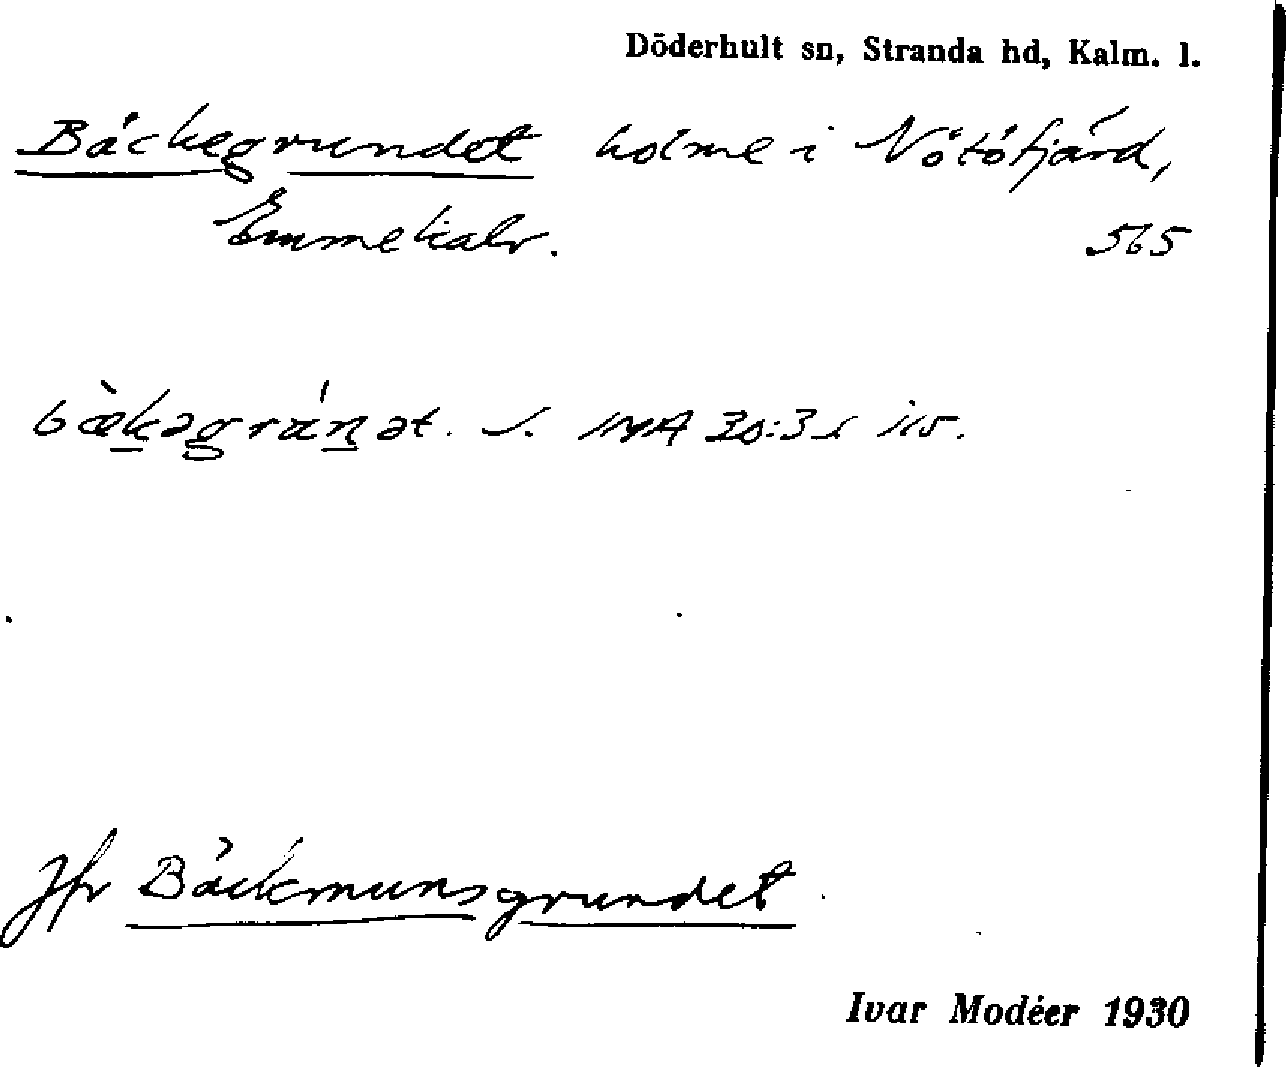 Döderhult sn, Stranda hd, Kalm. l.
Bäckegrundet holme i Nötöfjärd,
Emmekalv. 565
bæ̀kəgrán̠ət. S. 30:3
Jfr Bäckmunsgrundet
Ivar Modéer 1930